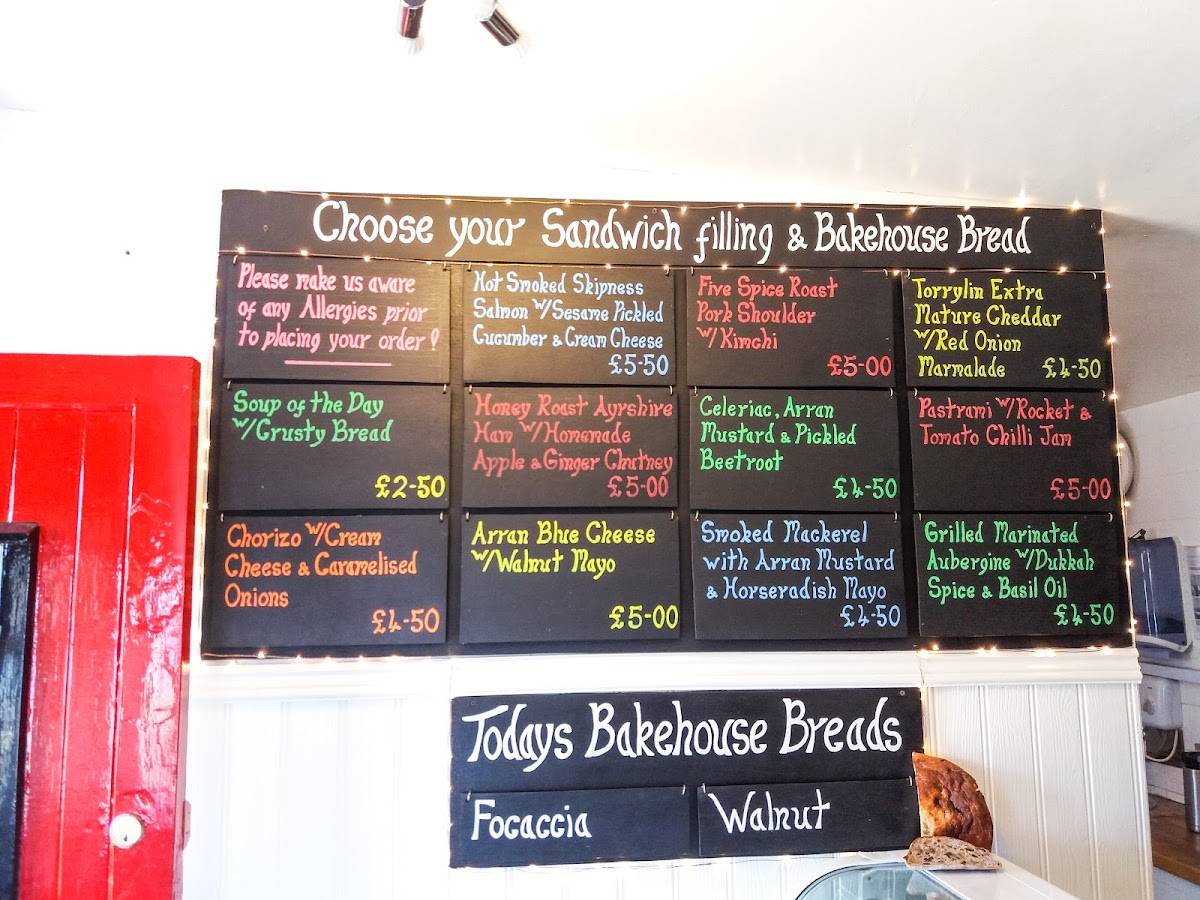 Choose your Sandwich filling & Bakehouse Bread
Please make us aware
of any Allergies prior
to placing your order!
Hot Smoked Skipness
Salmon w/Sesame Pickled
Cucumber & Cream Cheese
£5-50
Five Spice Roast
Pork Shoulder
w/Kimchi
£5-00
Torrylin Extra
Mature Cheddar
w/Red Onion
Marmalade £4-50
Soup of the Day
w/Crusty Bread
£2-50
Honey Roast Ayrshire
Ham w/Homemade
Apple & Ginger Chutney
£5-00
Celeriac, Arran
Mustard & Pickled
Beetroot
£4-50
Pastrami w/Rocket &
Tomato Chilli Jam
£5-00
Chorizo w/Cream
Cheese & Caramelised
Onions
£4-50
Arran Blue Cheese
w/Walnut Mayo
£5-00
Smoked Mackerel
with Arran Mustard
& Horseradish Mayo
£4-50
Grilled Marinated
Aubergine w/Dukkah
Spice & Basil Oil
£4-50
Todays Bakehouse Breads
Focaccia
Walnut